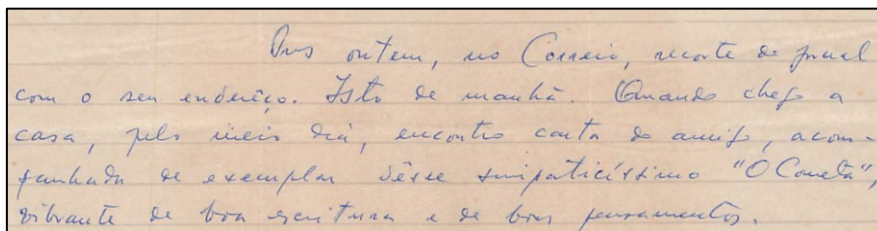 Pus ontem, no Correio, recorte de jornal
com o seu enderêço. Isto de manhã. Quando chego a
casa, pelo meio dia, encontro carta do amigo, acom-
panhada de exemplar dêsse simpaticíssimo "O Cometa",
vibrante de boa escritura e de bons pensamentos.